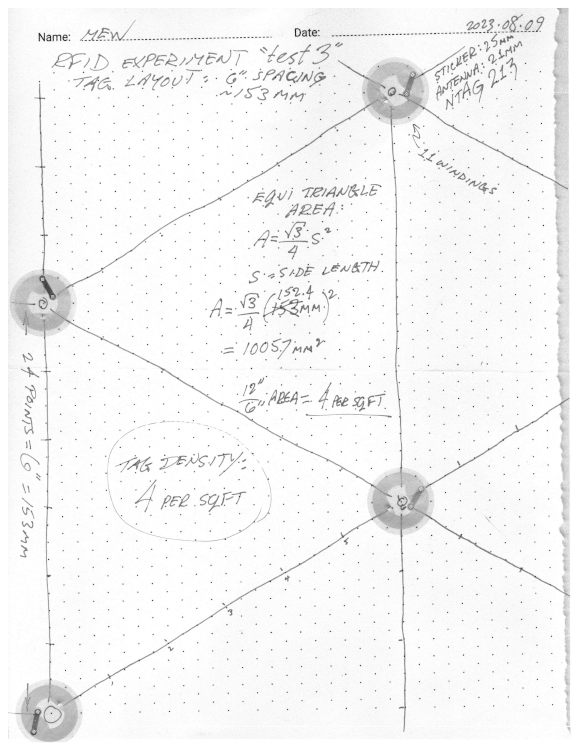 Name: MEW
Date: 2023·08·09
RFID EXPERIMENT "test 3"
TAG LAYOUT: 6" SPACING
~153 MM
STICKER: 25MM
ANTENNA: 21MM
NTAG 213
11 WINDINGS
EQUI TRIANGLE
AREA:
A = √3/4 S²
S = SIDE LENGTH
152.4
A = √3/4 (153MM)²
= 10057 MM²
12"/6" AREA = 4 PER SQFT
TAG DENSITY:
4 PER SQFT
24 POINTS = 6" = 153MM
1
2
3
4
5